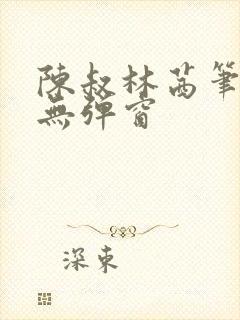 陳叔林茜筆
無彈窗
深東